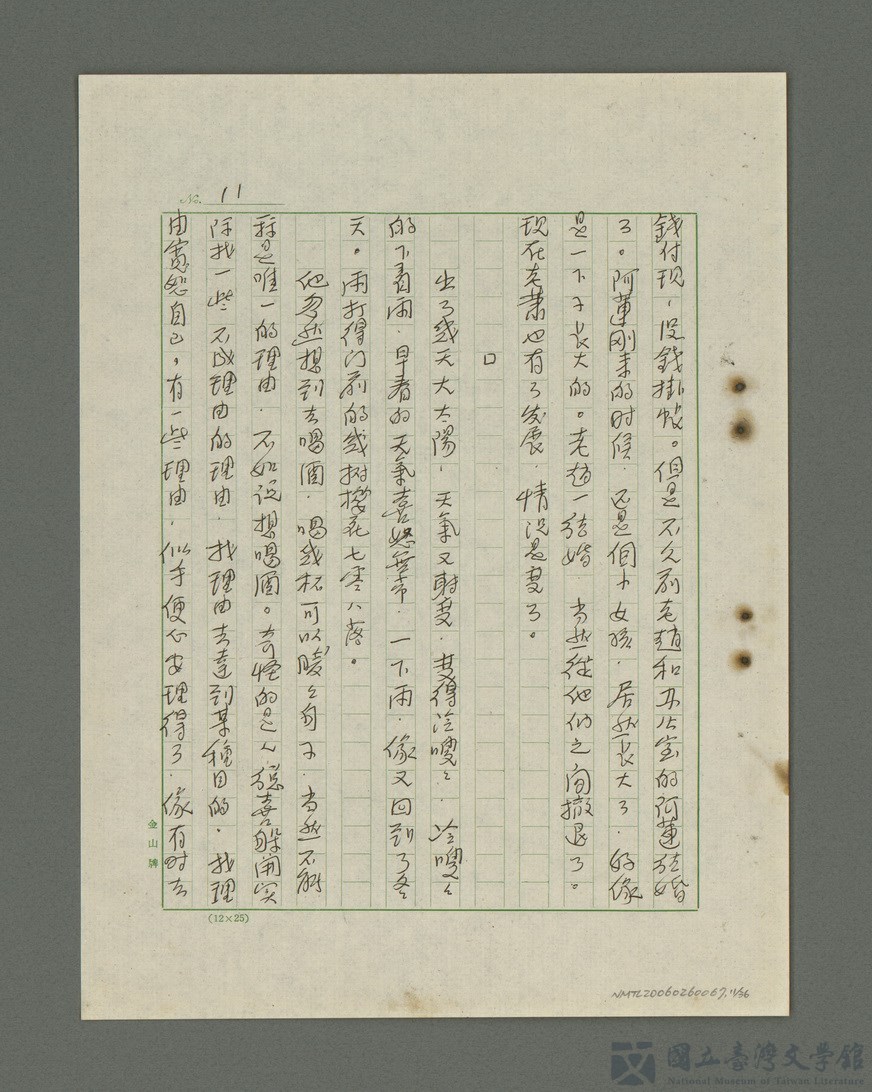 No. 11
錢付现，沒錢掛帳。但是不久前老趙和办公室的阿蓮結婚
了。阿蓮刚来的时候，还是個小女孩，居然長大了，的像
是一下子長大的。老趙一結婚，当然從他们之间撤退了。
现在老葉也有了发展，情況是变了。
□
出了幾天大太陽，天氣又転变，变得冷嗖々，冷嗖々
的下着雨，早春的天氣喜怒無常，一下雨，像又回到了冬
天。雨打得门前的幾树櫻花七零八落。
他忽然想到去喝酒，喝幾杯可以暖々身子，当然不解
釋是唯一的理由，不如说想喝酒。奇怪的是人總喜歡開实
际找一些不成理由的理由，找理由去達到某種目的，找理
由寬恕自己，有一些理由，似乎便心安理得了，像有时去
金山牌
(12×25)
NMTL20060260067.11/36
國立臺灣文學館
National Museum of Taiwan Literature